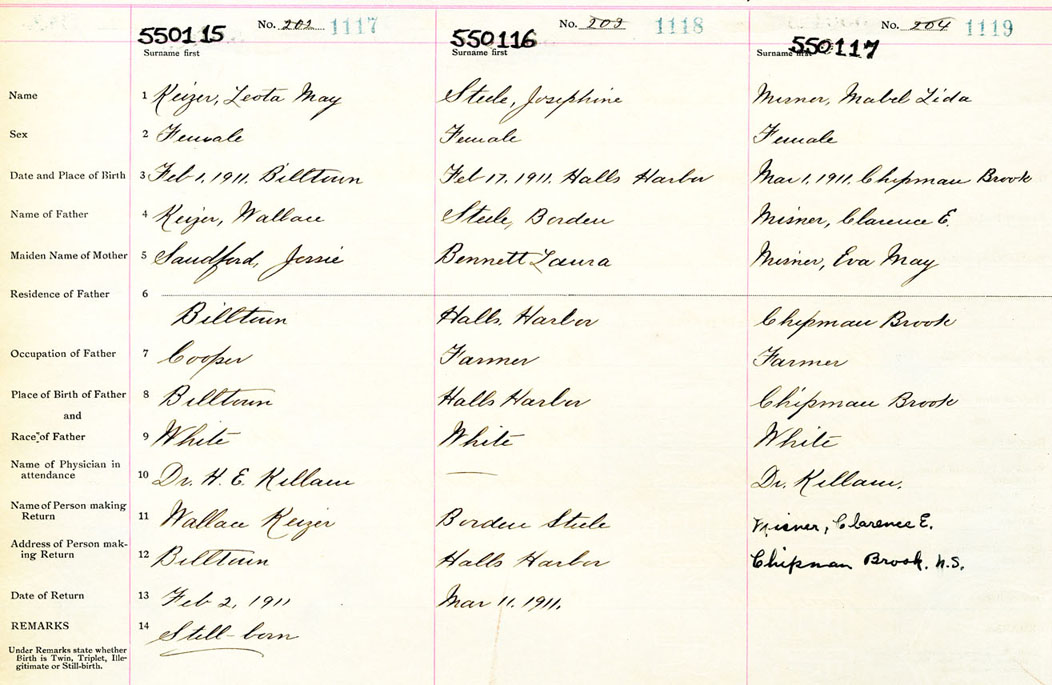 No. 202 1117 No. 203 1118 No. 204 1119
550115 550116 550117
Surname first Surname first Surname first
Name 1 Keizer, Leota May Steele, Josephine Misner, Mabel Lida
Sex 2 Female Female Female
Date and Place of Birth 3 Feb 1, 1911. Billtown Feb 17, 1911. Halls Harbor Mar 1, 1911. Chipman Brook
Name of Father 4 Keizer, Wallace Steele, Borden Misner, Clarence E.
Maiden Name of Mother 5 Sandford, Jessie Bennett Laura Misner, Eva May
Residence of Father 6
Billtown Halls. Harbor Chipman Brook
Occupation of Father 7 Cooper Farmer Farmer
Place of Birth of Father 8 Billtown Halls Harbor Chipman Brook
and
Race of Father 9 White White White
Name of Physician in
attendance 10 Dr. H. E. Killam — Dr. Killam.
Name of Person making
Return 11 Wallace Keizer Borden Steele Misner, Clarence E.
Address of Person mak-
ing Return 12 Billtown Halls Harbor Chipman Brook. N.S.
Date of Return 13 Feb 2, 1911 Mar 11, 1911.
REMARKS 14 Still-born
Under Remarks state whether
Birth is Twin, Triplet, Ille-
gitimate or Still-birth.